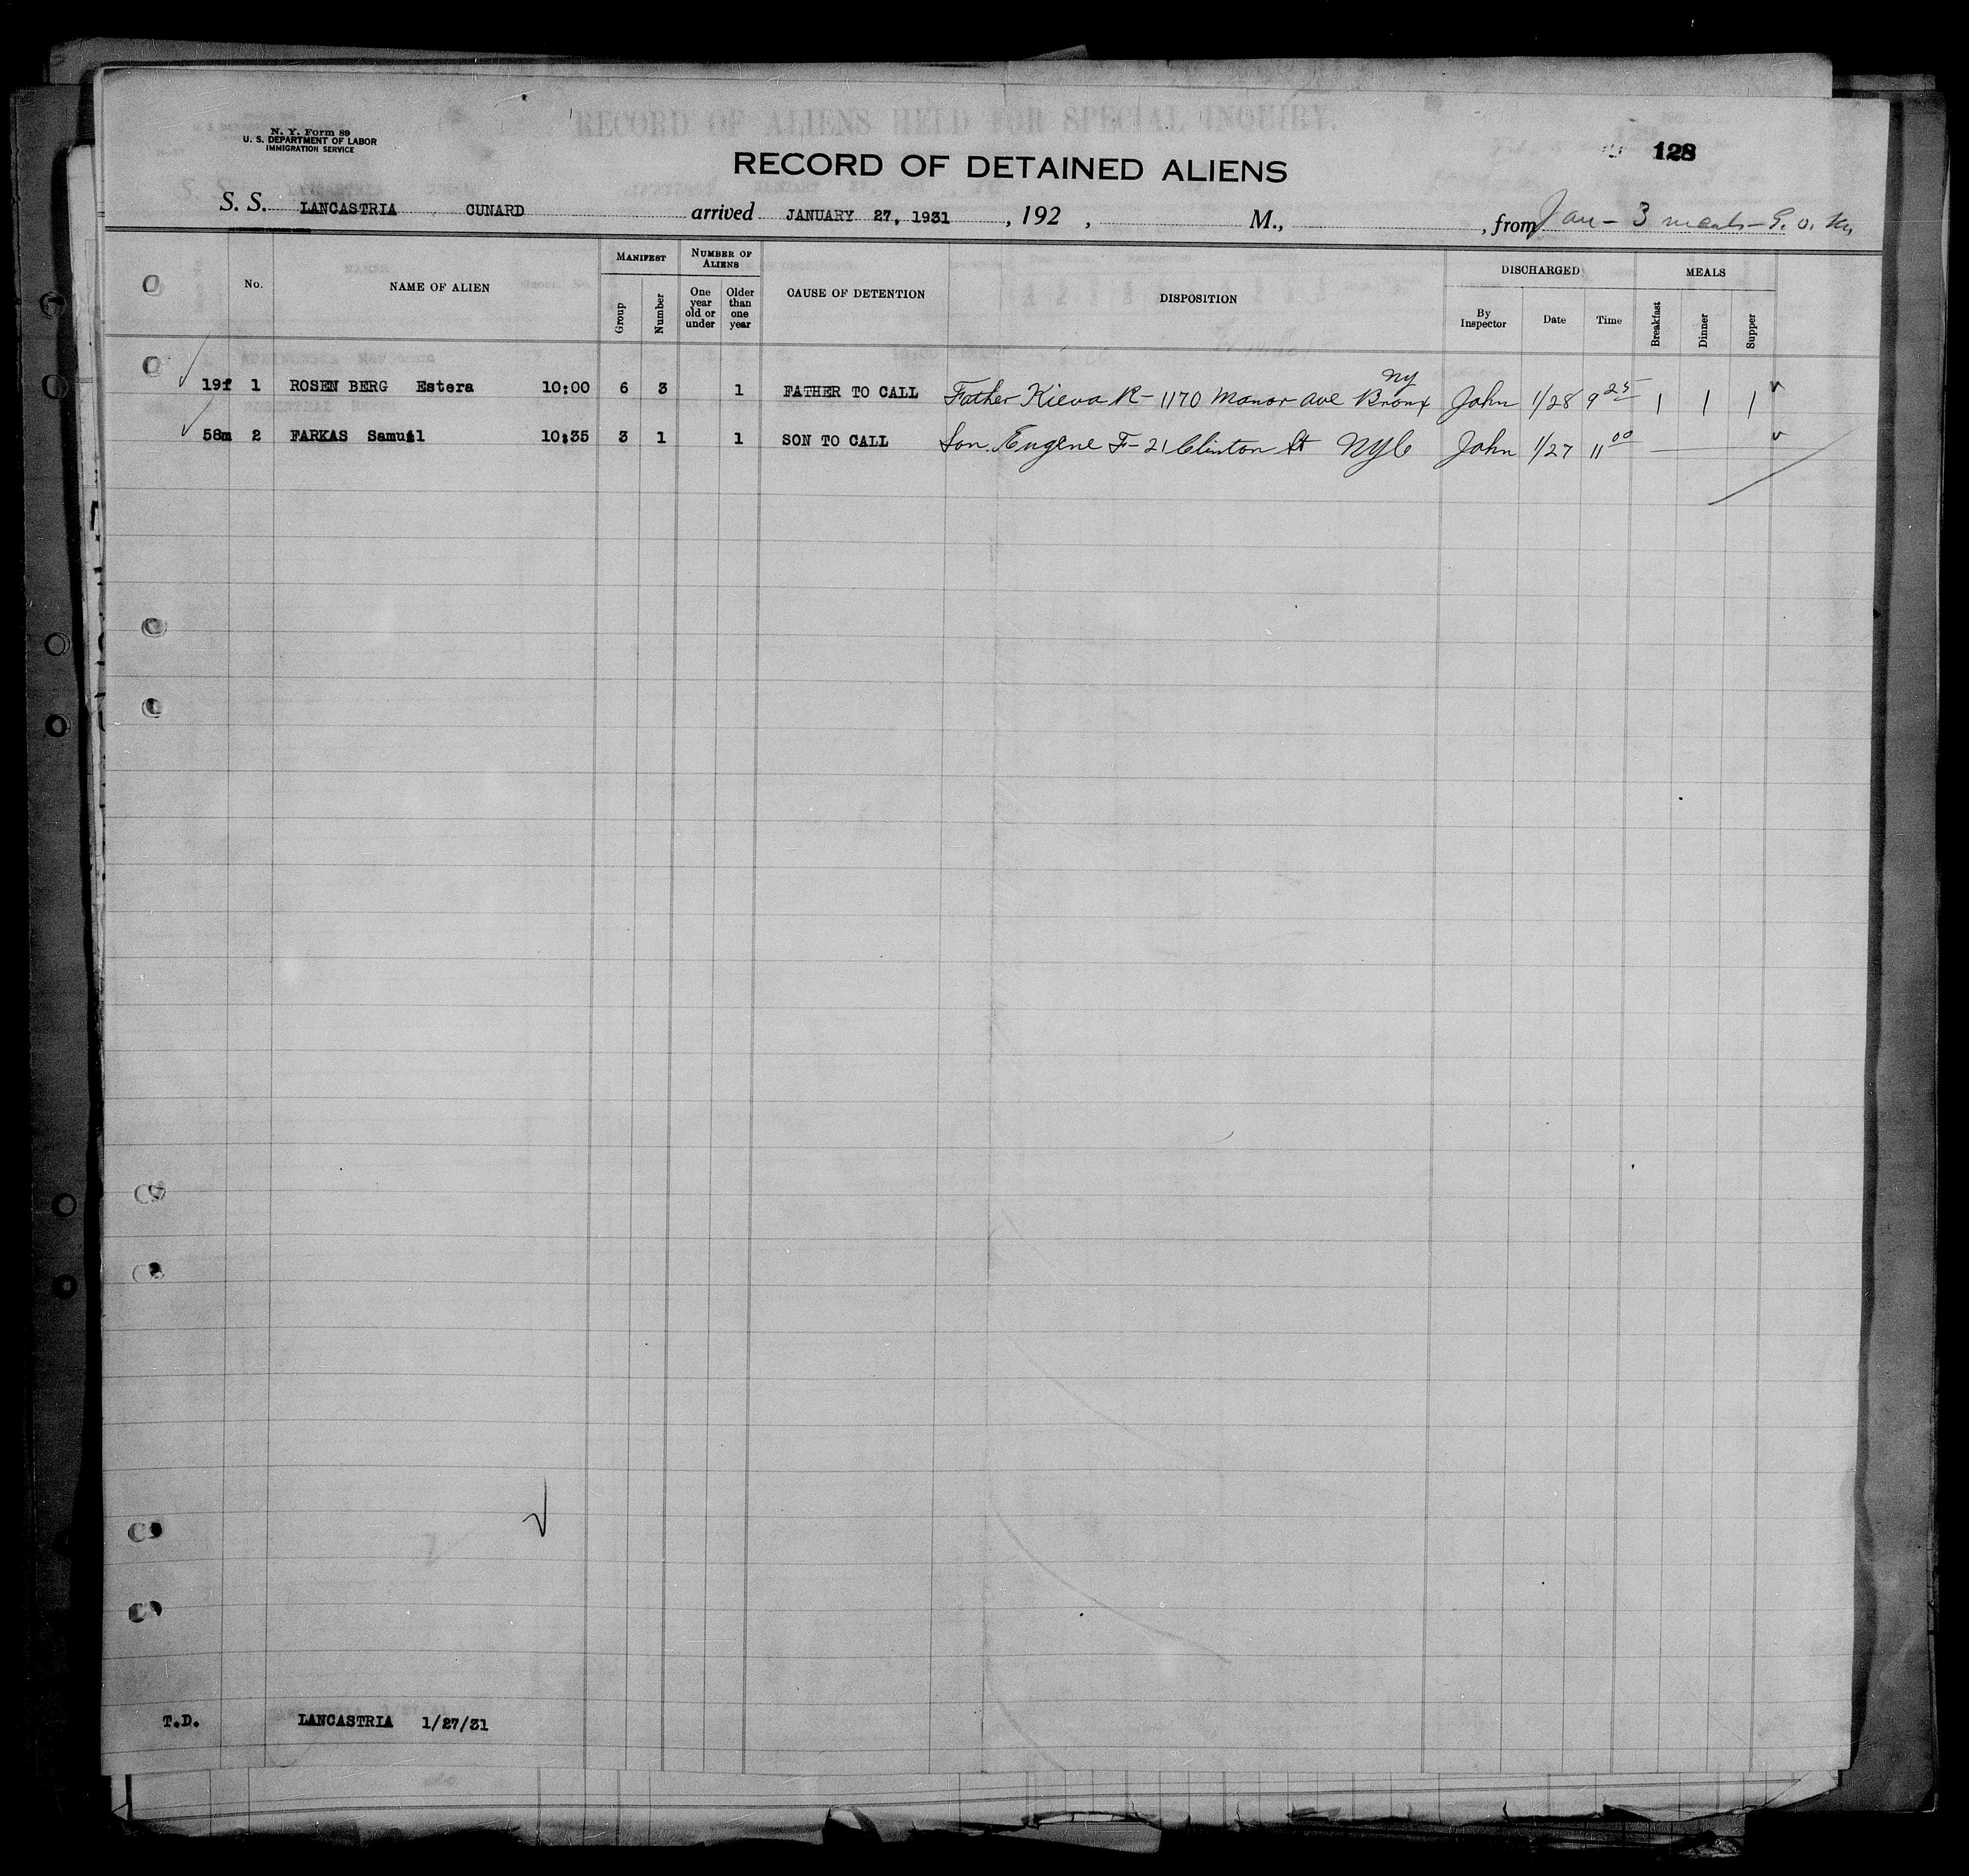 RECORD OF ALIENS HELD FOR SPECIAL INQUIRY.
N. Y. Form 89
U. S. DEPARTMENT OF LABOR
IMMIGRATION SERVICE
128
RECORD OF DETAINED ALIENS
S. S. LANCASTRIA CUNARD arrived JANUARY 27, 1931 , 192 , M., , from Jan - 3 meals -
No. NAME OF ALIEN MANIFEST Group Number NUMBER OF ALIENS One year old or under Older than one year CAUSE OF DETENTION DISPOSITION DISCHARGED By Inspector Date Time MEALS Breakfast Dinner Supper
19f 1 ROSEN BERG Estera 10:00 6 3 1 FATHER TO CALL Father Kieva R - 1170 Manor ave Bronx NY John 1/28 9 25 1 1 1
58m 2 FARKAS Samuel 10:35 3 1 1 SON TO CALL Son. Eugene F - 21 Clinton St NYC John 1/27 11 00
T.D. LANCASTRIA 1/27/31